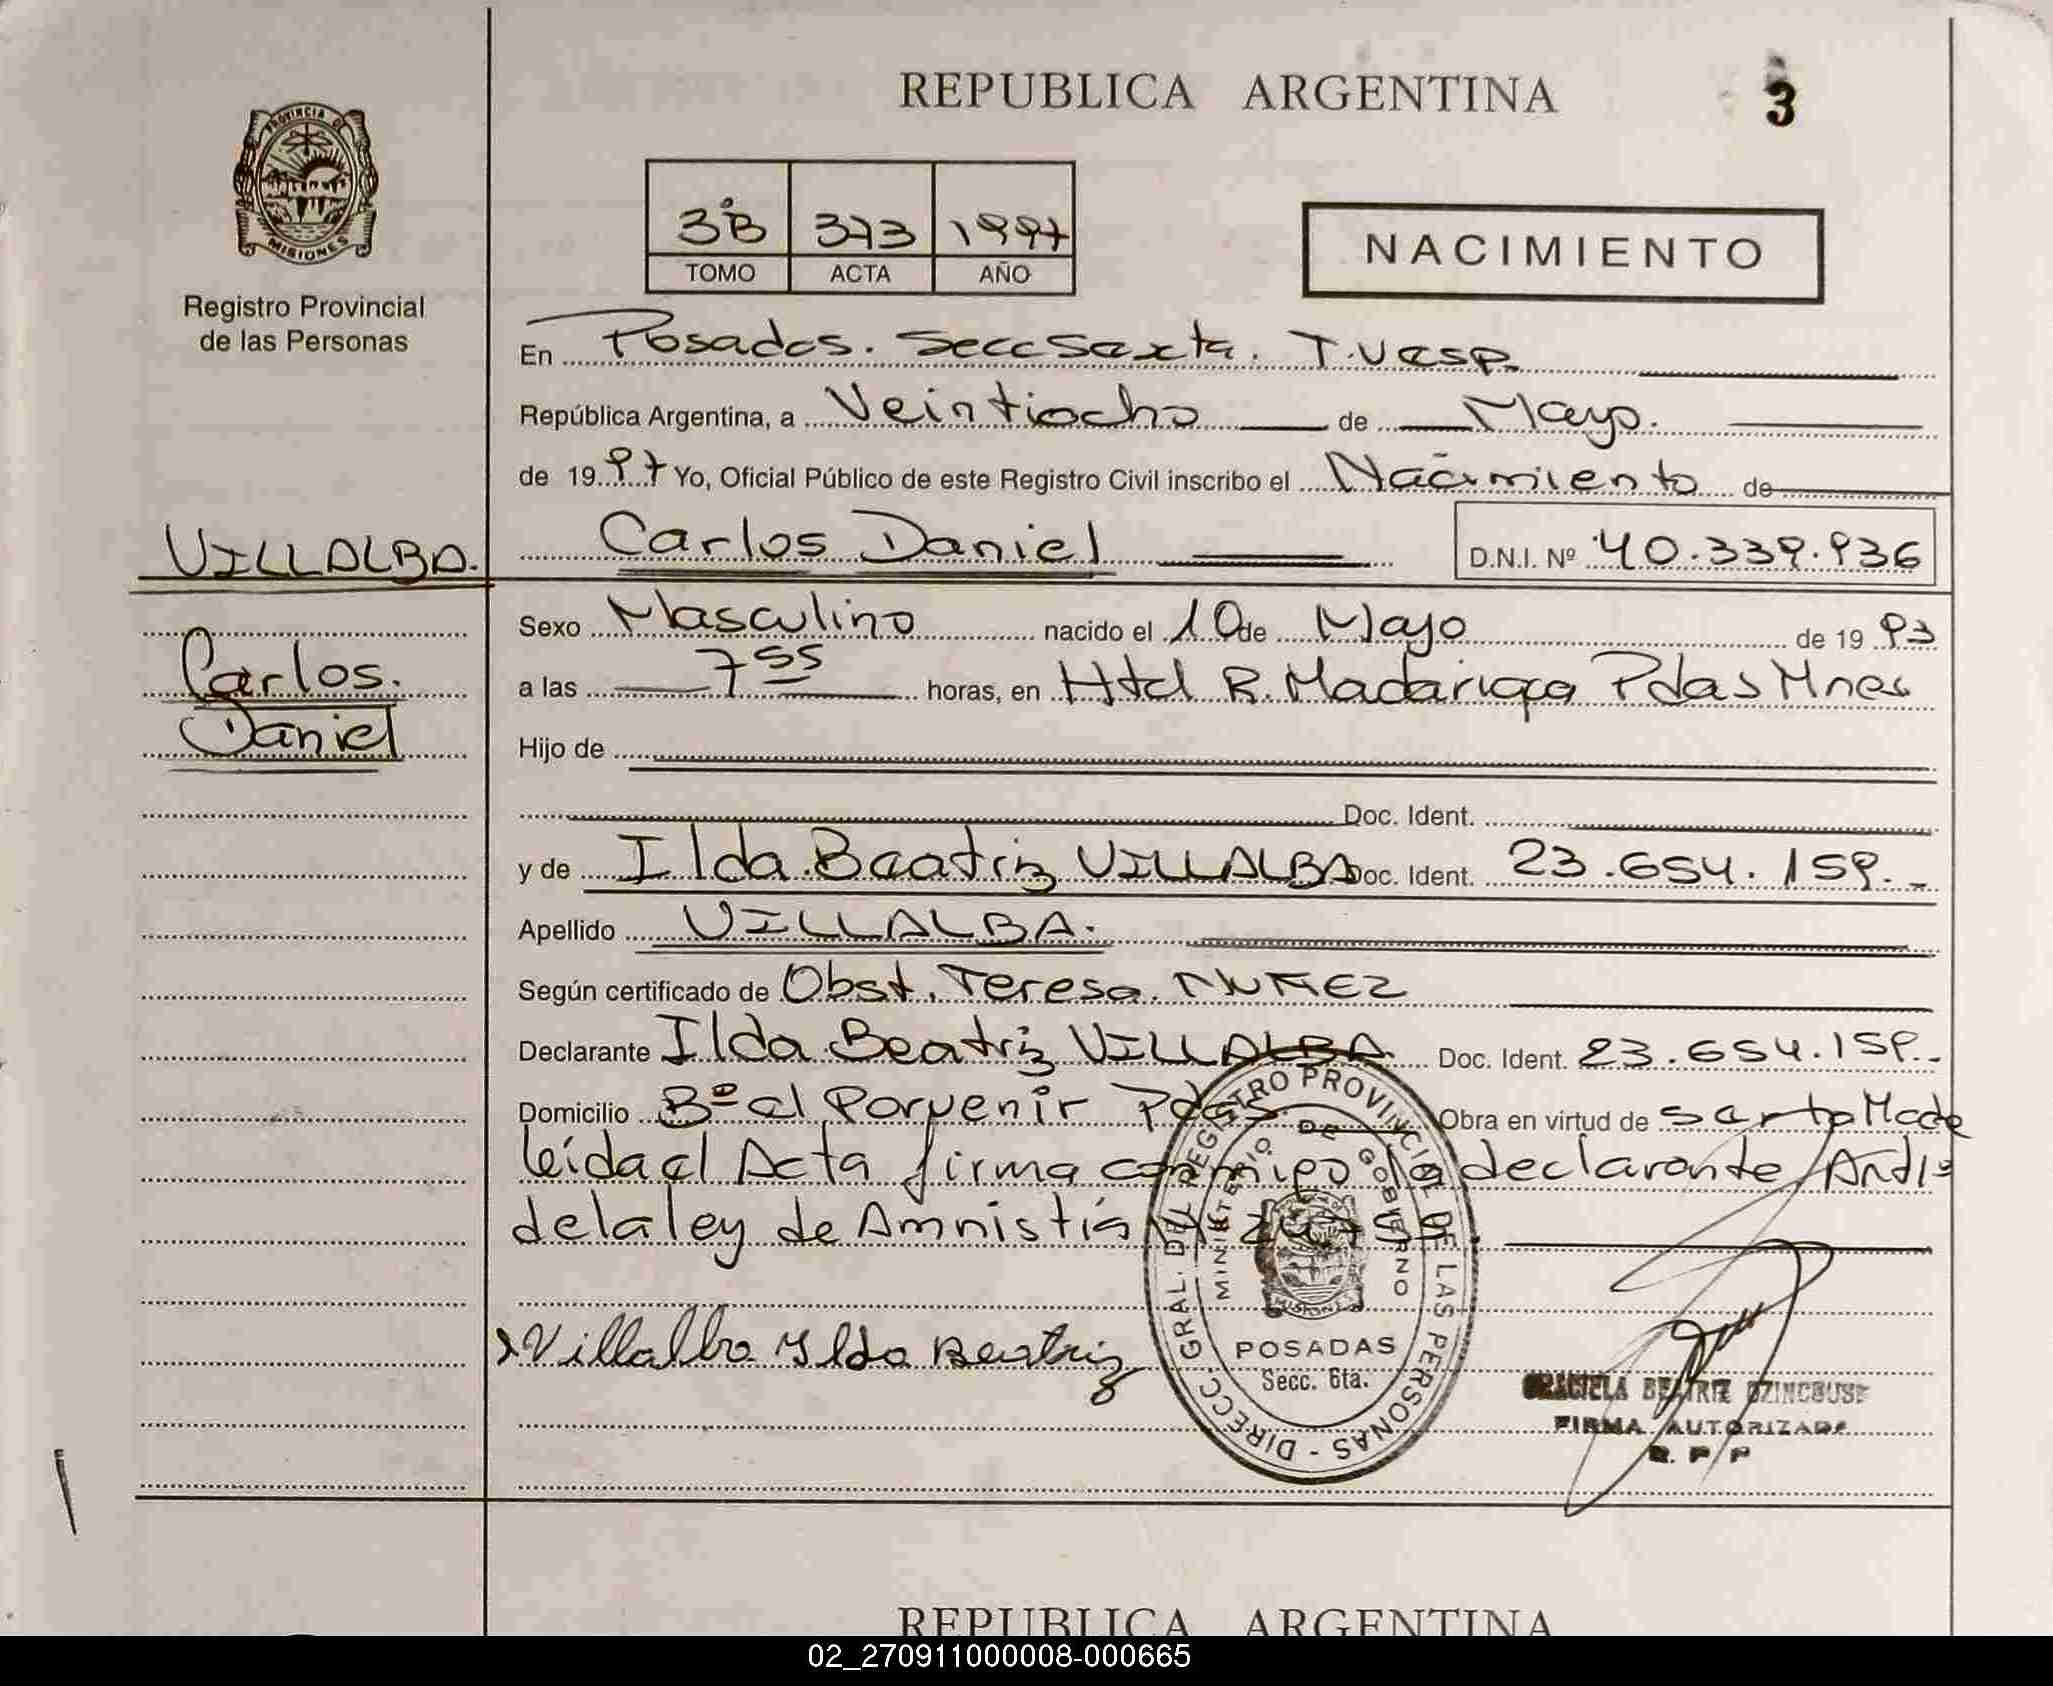 REPUBLICA ARGENTINA
3
PROVINCIA DE
MISIONES
Registro Provincial
de las Personas
3ºB 373 1997
TOMO ACTA AÑO
NACIMIENTO
En Posadas. Secc Sexta. T.Vesp.
República Argentina, a Veintiocho de Mayo.
de 1997 Yo, Oficial Público de este Registro Civil inscribo el Nacimiento de
VILLALBA. Carlos Daniel D.N.I. Nº 40.339.936
Sexo Masculino nacido el 10 de Mayo de 1993
Carlos. a las 7 55 horas, en Htal R. Madariaga Pdas Mnes
Daniel Hijo de
Doc. Ident.
y de Ilda Beatriz VILLALBA Doc. Ident. 23.654.159.-
Apellido VILLALBA.
Según certificado de Obst. Teresa NUÑEZ
Declarante Ilda Beatriz VILLALBA Doc. Ident. 23.654.159.-
Domicilio Bº el Porvenir Pdas. Obra en virtud de
leida el Acta firma conmigo la declarante
de la ley de Amnistía
Villalba Ilda Beatriz
DIRECC. GRAL. DEL REGISTRO PROVINCIAL DE LAS PERSONAS -
MINISTERIO DE GOBIERNO
MISIONES
POSADAS
Secc. 6ta.
GRACIELA BEATRIZ
FIRMA AUTORIZADA
R. P. P
REPUBLICA ARGENTINA
02_270911000008-000665